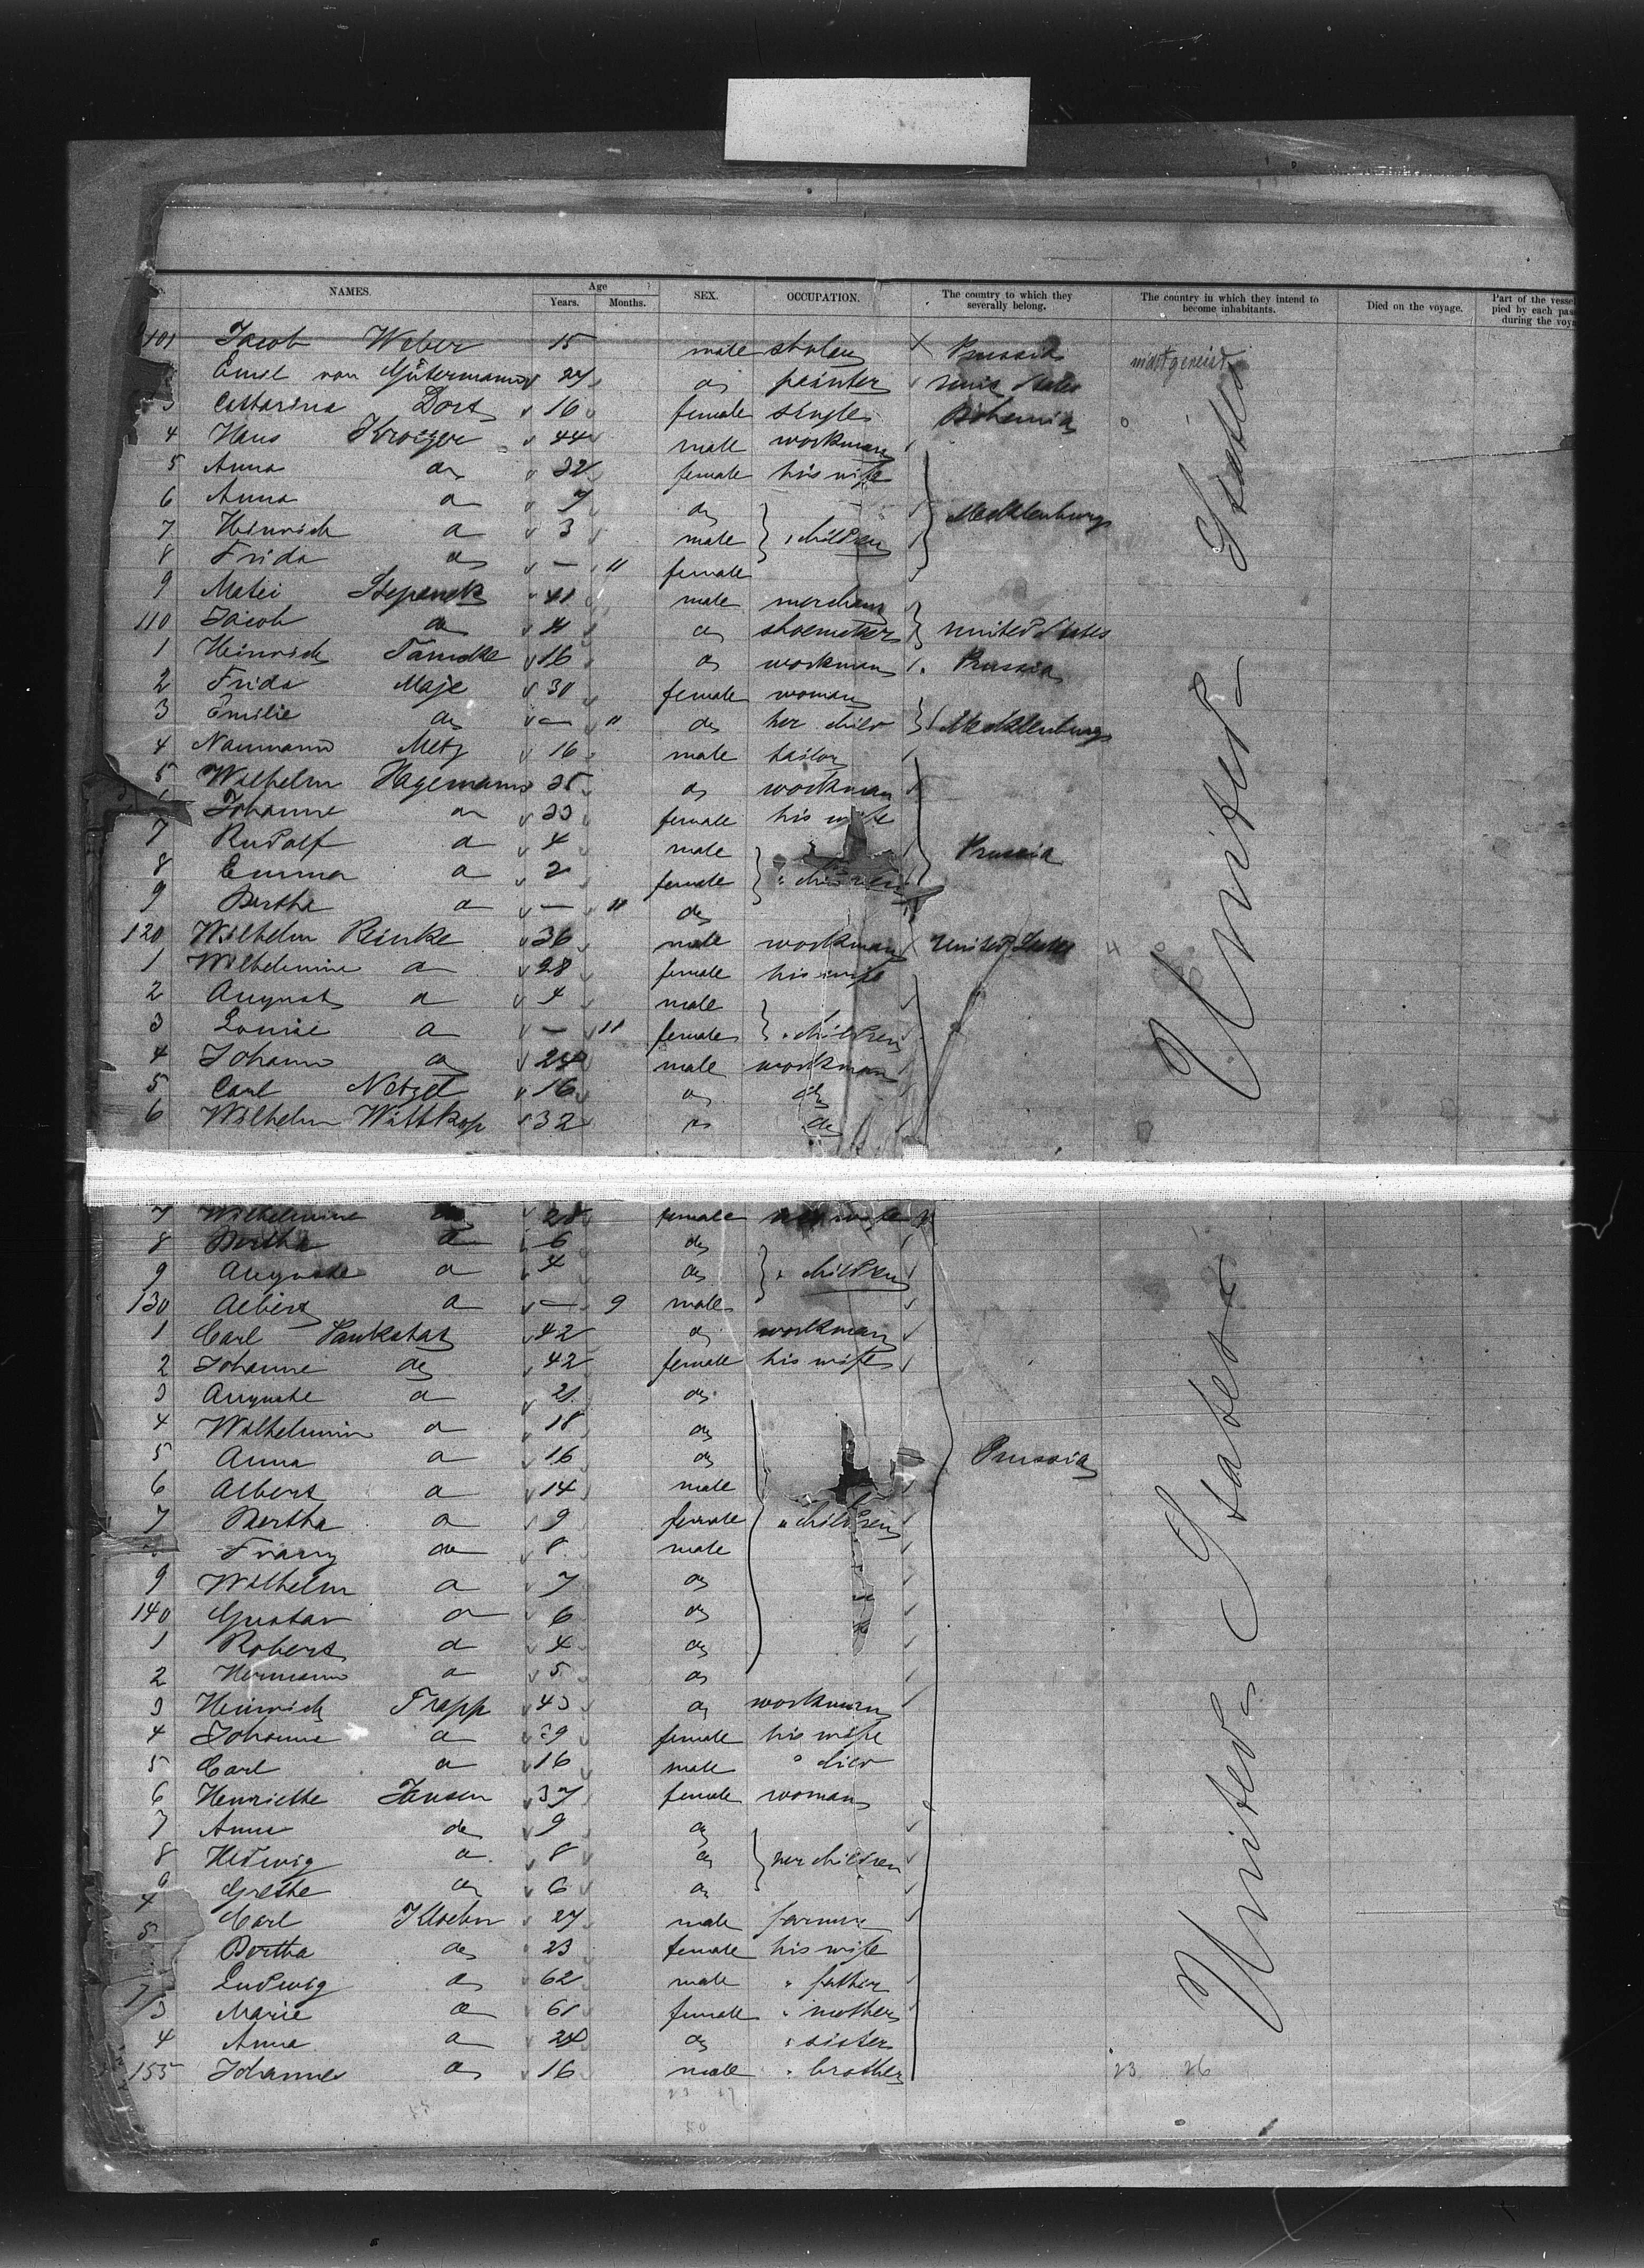 No. NAMES. Age Years. Months. SEX. OCCUPATION. The country to which they severally belong. The country in which they intend to become inhabitants. Died on the voyage. Part of the vessel pied by each pas during the voya
101 Jacob Weber 15 male Prussia
Emil von Gütermann 27 do painter States
3 Catharina Dort 16 female single Bohemia
4 Hans Kroeger 44 male workman
5 Anna do 32 female his wife
6 Anna do 7 do
7 Heinrich do 3 male " children Mecklenburg
8 Frida do — 11 female
9 Matei Stepanek 41 male merchant
110 Jacob do do shoemaker United States
1 Heinrich 16 do workman Prussia
2 Frida Maje 30 female woman
3 Emilie do — 11 do her child Mecklenburg
4 Naumann Metz 16 male tailor
5 Wilhelm Hagemann 35 do workman
6 Johanne do 33 female his wife
7 Rudolf do 4 male Prussia
8 Emma do 2 female " children
9 Bertha do — 11 do
120 Wilhelm Reinke 36 male workman United States
1 Wilhelmine do 28 female his wife
2 August do 4 male
3 Louise do — 11 female " children
4 Johann do 24 male workman
5 Carl Netzel 16 do do
6 Wilhelm Wittkop 32 do do
United States
7 Wilhelmine do 28 female his wife
8 Bertha do 6 do
9 Auguste do 4 do " children
130 Albert do — 9 male
1 Carl Pankatat 42 do workman
2 Johanne do 42 female his wife
3 Auguste do 21 do
4 Wilhelmine do 18 do
5 Anna do 16 do Prussia
6 Albert do 14 male
7 Bertha do 9 female " children
Franz do 8 male
9 Wilhelm do 7 do
140 Gustav do 6 do
1 Robert do 4 do
2 Hermann do 5 do
3 Heinrich Trapp 43 do workman
4 Johanne do 39 female his wife
5 Carl do 16 male " child
6 Henriette Jansen 37 female woman
7 Anna do 9 do
8 Hedwig do 8 do her children
9 Grethe do 6 do
Carl Kloehn 27 male farmer
Bertha do 23 female his wife
Ludwig do 62 male " father
3 Marie do 61 female " mother
4 Anna do 24 do " sister
155 Johannes do 16 male " brother
United States
23 26